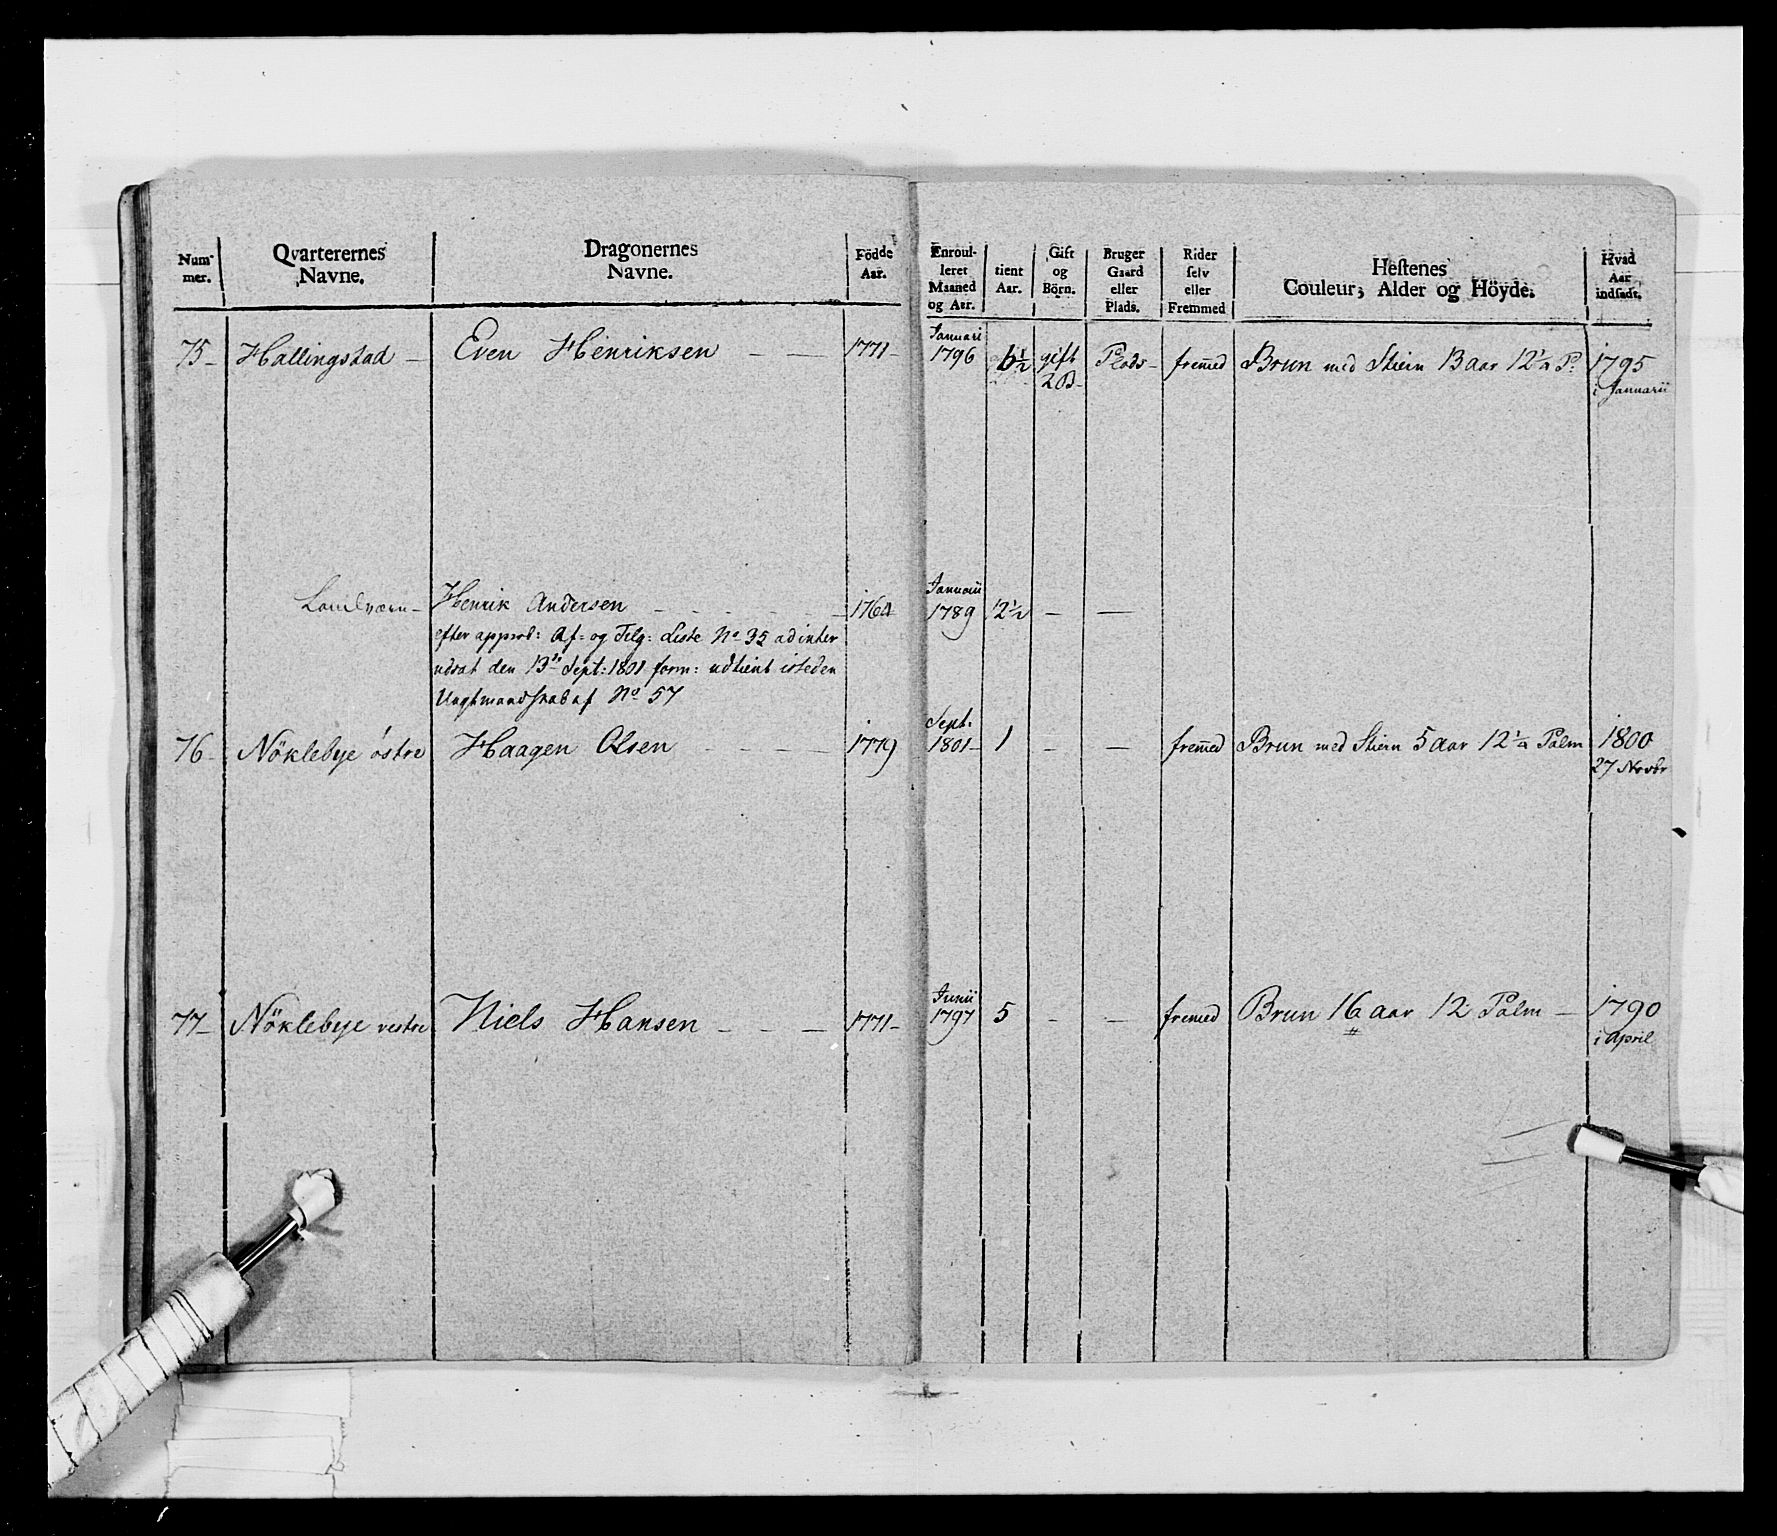 Num- mer. Qvarterernes Navne. Dragonernes Navne. Födde Aar. Enroul- leret Maaned og Aar. tient Aar. Gift og Börn. Bruger Gaard eller Plads. Rider selv eller Fremmed Hestenes Couleur, Alder og Höyde. Hvad Aar indsadt.
75 – Hallingstad – Even Henriksen – – 1771 – Januari 1796 6½ gift 2 B – Plads – fremed Brun med Stiern 13 aar 12¼ P: 1795 i Januarii
Landværn – Henrik Andersen – – – – – 1764 Januarii 1789 12½ – –
efter approb: Af- og Tilg: Liste No 35 ad inter
udsat den 13de Sept: 1801 form: udtient isteden
Ungtmandskab af No 57
76 – Nöklebye östre Haagen Olsen – – – 1779 Sept: 1801 – 1 – – fremed Brun med Stiern 5 aar 12¼ Palm 1800 27 Novbr
77 – Nöklebye vestre Niels Hansen – – – 1771 – Junii 1797 5 – – fremed Brun 16 aar 12 Palm – 1790 i April